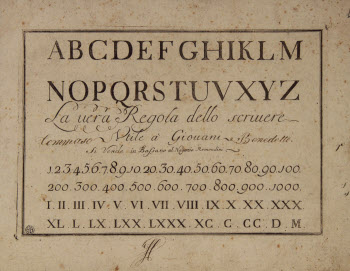 ABCDEFGHIKLM
NOPQRSTUVXYZ
La vera Regola dello scrivere
Utile à Giovani
Si Vende in Bassano
1.2.3.4.5.6.7.8.9.10.20.30.40.50.60.70.80.90.100.
200. 300. 400. 500. 600. 700. 800. 900. 1000.
I. II. III. IV. V. VI. VII. VIII. IX. X. XX. XXX.
XL. L. LX. LXX. LXXX. XC. C. CC. D. M